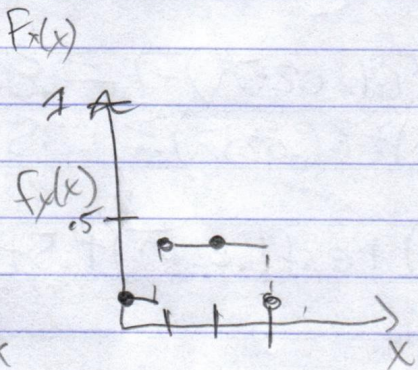 Fx(x)
1
fx(x)
.5
x